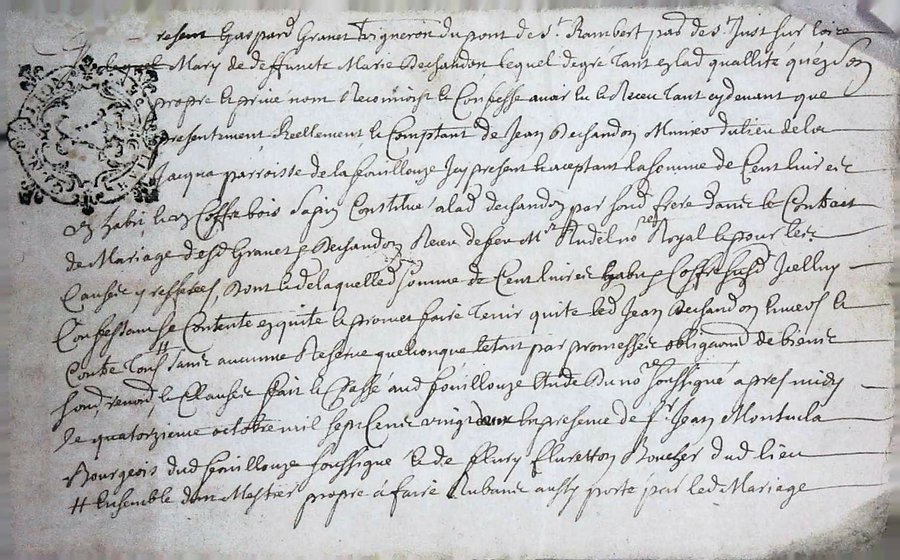 resent Gaspard Granet Vigneron du pont de St Rambert pas de St Just sur Loire
Mary de deffuncte Marie Dechandon lequel degré tant esd quallité qué Son
propre et privé nom Reconnoist et Confesse avoir eu et Receu tant cydevant que
presentement Reellement et Comptant de Jean Dechandon Munier du lieu de la
Jacqua parroisse de la fouillouze Icy present et aceptant la somme de Cent livres
habit et Coffre bois Sapin Constitué a lad dechandon par sond frere dans le Contract
de Mariage desd Granet et Dechandon Receu de feu Mr nore Royal et pour les
Causes y resferées, dont et de laquelled somme de Cent livres habit et Coffre susd Icelluy
Confessant se Contente et quite et promet faire Tenir quite led Jean Dechandon Envers et
Contre Tous # sans aucunne Reserve quelconque et tout par promesses obligaons de biens
sond renonon et Clauses fait et Passé aud fouillouze Etude du nore soussigné apres midy
le quatorzieme octobre mil sept Cens vingt deux En presence de sr Jean Montucla
Bourgeois dud fouillouze soussigné et de fleury flouretton Boucher dud lieu
# Ensemble dun Mestier propre à faire Rubans aussy porté par led Mariage